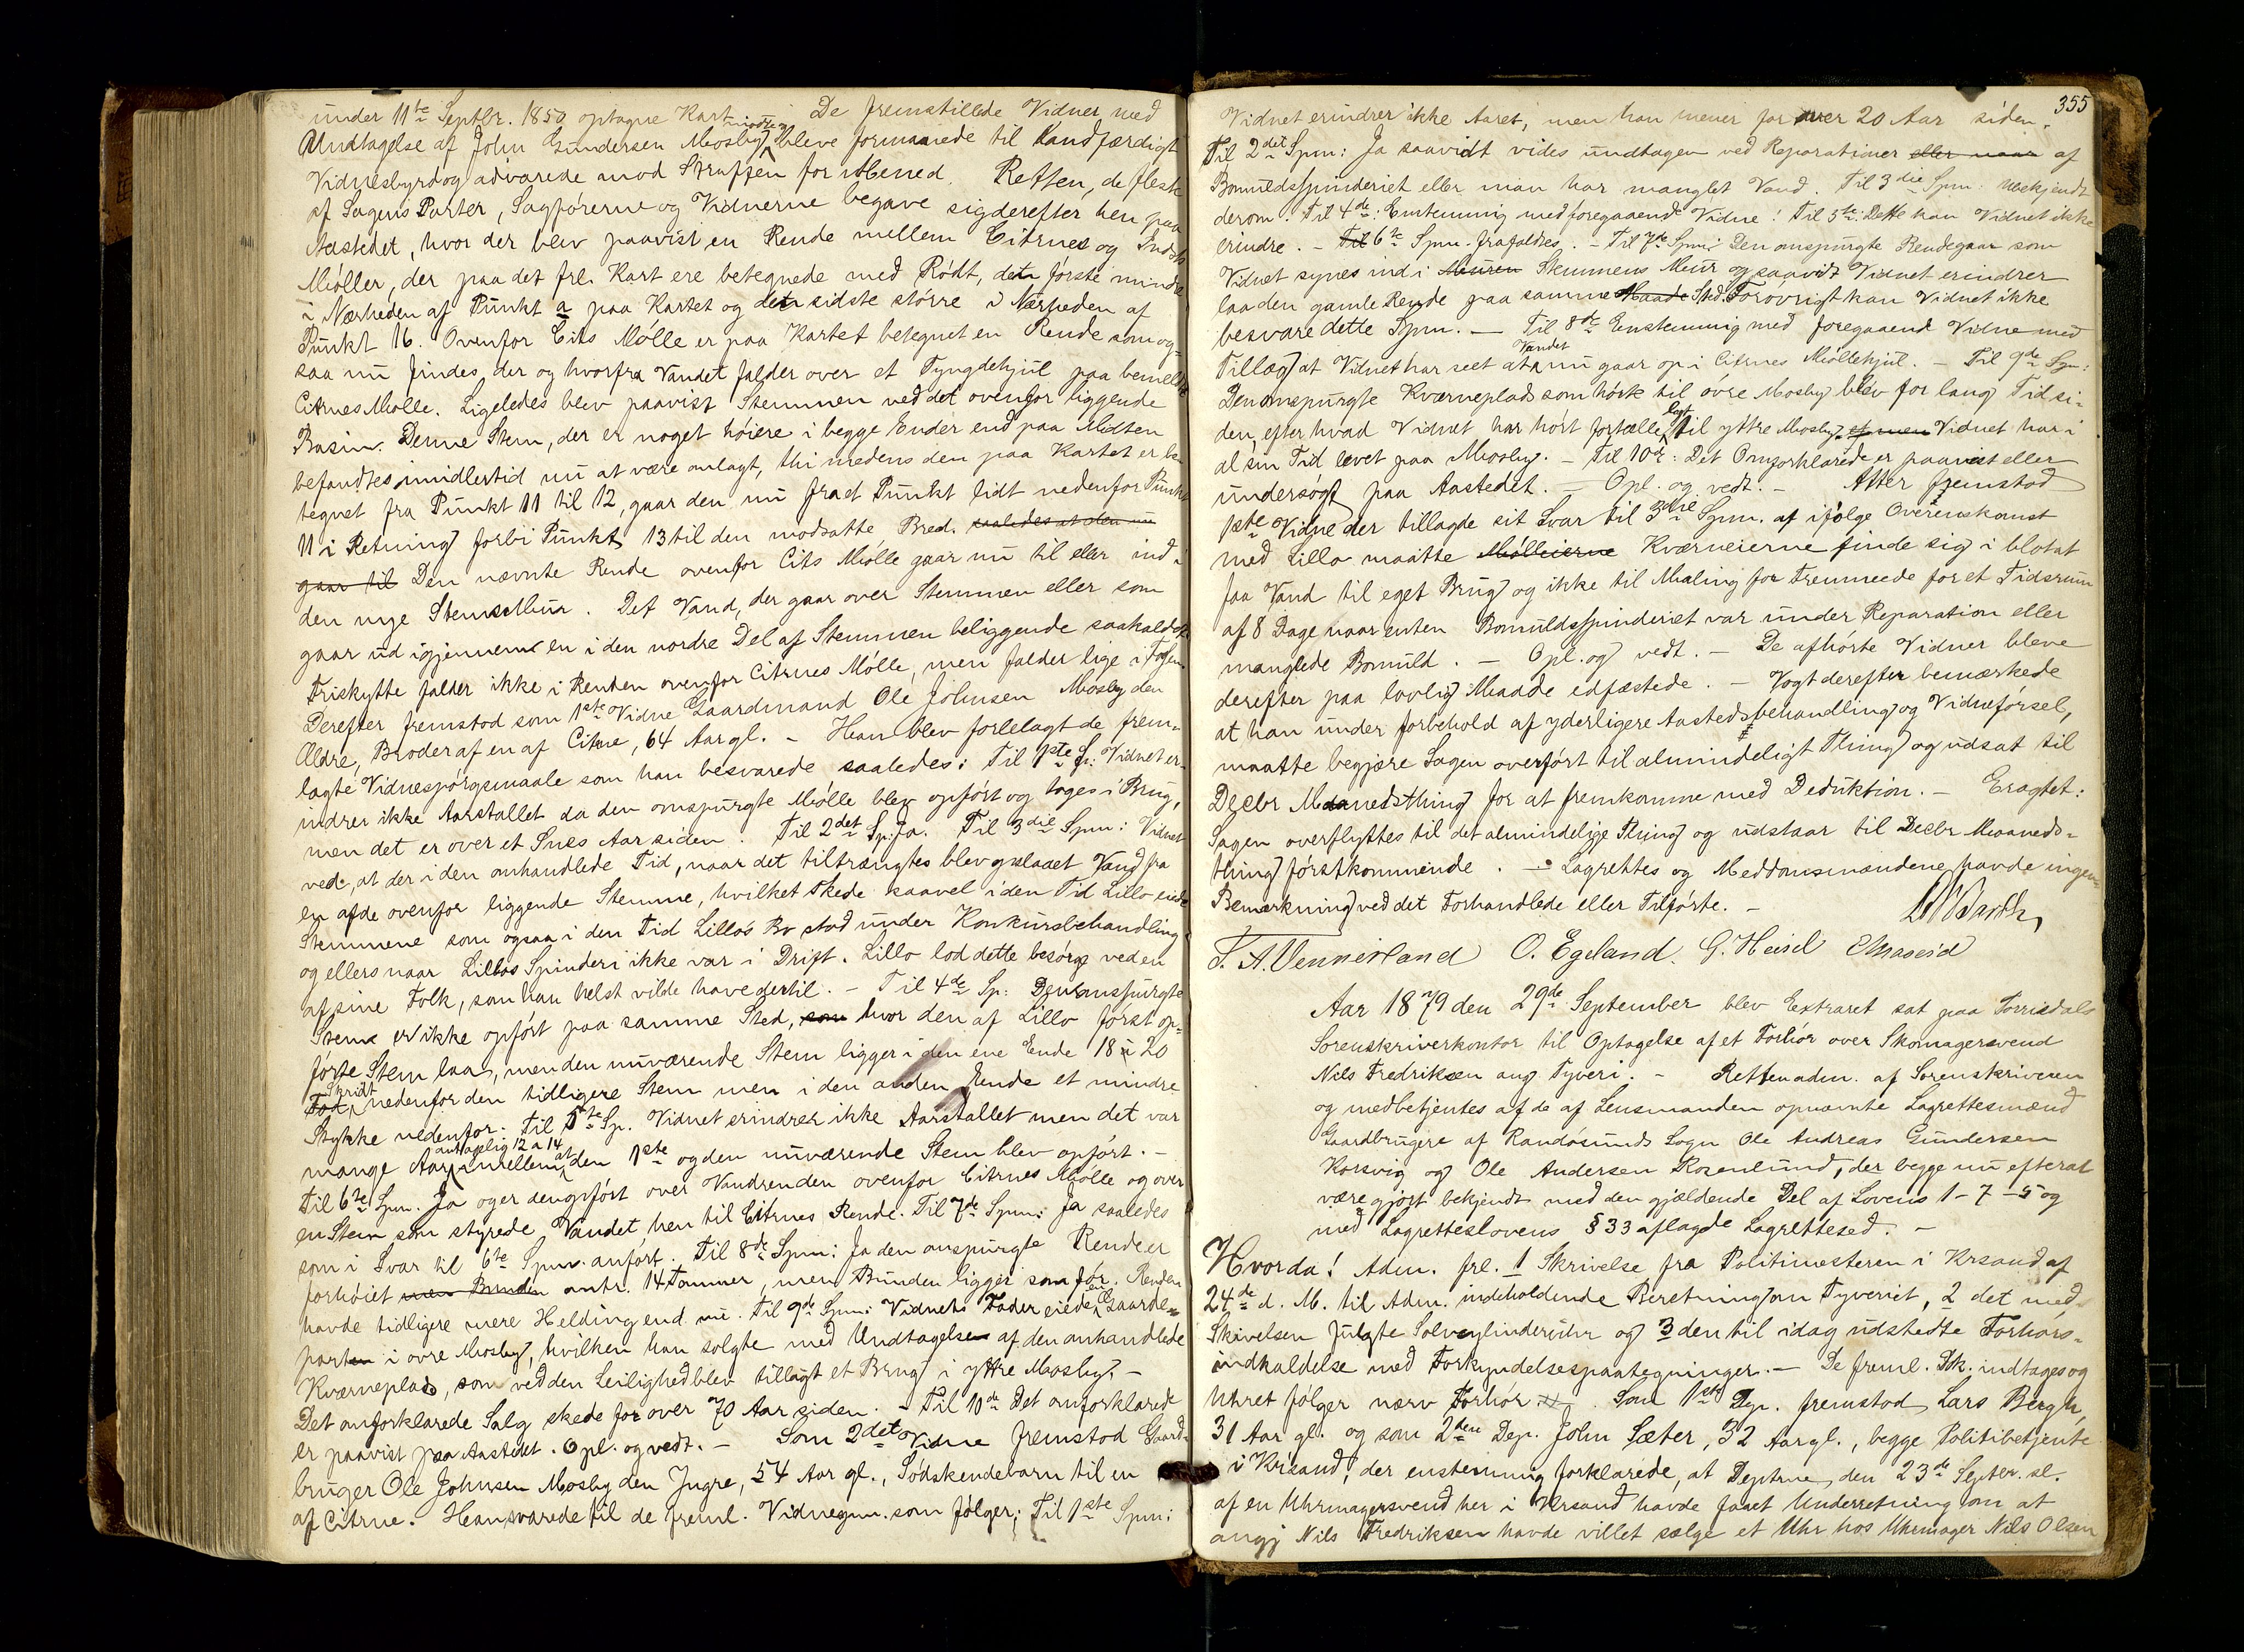 under 11te Septbr. 1850 optagne Kart. De fremstillede Vidner med
Undtagelse af John Gundersen Mosby bleve formanede til sandfærdigt
Vidnesbyrd og advarede mod Straffen for Mened. Retten, de fleste
af Sagens Parter, Sagførerne og Vidnerne begave sig derefter hen paa
Aastedet, hvor der blev paavist en Rende mellem Citrnes og Indst.
Møller, der paa det frl. Kart ere betegnede med Rødt, den første mindre
i Nærheden af Punkt a paa Kartet og den sidste større i Nærheden af
Punkt 16. Ovenfor Cits Mølle er paa Kartet betegnet en Rende som og-
saa nu findes der og hvorfra Vandet falder over et Tyngdehjul paa bemeldte
Citrnes Mølle. Ligeledes blev paavist Stemmen ved det ovenfor liggende
Basin. Denne Stem, der er noget høiere i begge Ender end paa Midten
befandtes imidlertid nu at være omlagt, thi medens den paa Kartet er be-
tegnet fra Punkt 11 til 12, gaar den nu fra et Punkt lidt nedenfor Punkt
11 i Retning forbi Punkt 13 til den modsatte Bred. saaledes at den nu
gaar til Den nævnte Rende ovenfor Cits Mølle gaar nu til eller ind i
den nye Stems Muur. Det Vand, der gaar over Stemmen eller som
gaar ud igjennem en i den nordre Del af Stemmen beliggende saakaldet
Friskytte falder ikke i Renden ovenfor Citrnes Mølle, men falder lige i Fossen.
Derefter fremstod som 1ste Vidne Gaardmand Ole Johnsen Mosby den
Ældre, Broder af en af Citrne, 64 Aar gl. - Han blev forelagt de frem-
lagte Vidnespørgsmaale som han besvarede saaledes: Til 1ste Sp: Vidnet er-
indrer ikke Aarstallet da den omspurgte Mølle blev opført og toges i Brug,
men det er over et Snes Aar siden. Til 2det Sp: Ja. Til 3die Spm: Vidnet
ved, at der i den omhandlede Tid, naar det tiltrængtes blev opslaaet Vand fra
en af de ovenfor liggende Stemme, hvilket skede saavel i den Tid Lillo eiede
Stemmene som ogsaa i den Tid Lillos Bo stod under Konkursbehandling
og ellers naar Lillos Spinderi ikke var i Drift. Lillo lod dette besørge ved en
af sine Folk, som han helst vilde have dertil. - Til 4de Sp: Den omspurgte
Stem er ikke opført paa samme Sted, som hvor den af Lillo først op-
førte Stem laa, men den nuværende Stem ligger i den ene Ende 18 à 20
Fod Skridt nedenfor den tidligere Stem men i den anden Ende et mindre
Stykke nedenfor. Til 5te Sp. Vidnet erindrer ikke Aarstallet men det var
mange Aar antagelig 12 a 14 imellem at den 1ste og den nuværende Stem blev opført. -
Til 6te Spm. Ja og er den opført over Vandrenden ovenfor Citrnes Mølle og over
en Stem som styrede Vandet hen til Citrnes Rende. Til 7de Spm: Ja saaledes
som i Svar til 6te Spm. anført. Til 8de Spm: Ja den omspurgte Rende er
forhøiet men Bunden omtr. 14 Tommer, men Bunden ligger som før. Renden
havde tidligere mere Helding end nu. Til 9de Spm: Vidnets Fader eiede en Gaarde-
parten i øvre Mosby, hvilken han solgte med Undtagelse af den omhandlede
Kværneplads, som ved den Leilighed blev tillagt et Brug i yttre Mosby. -
Det omforklarede Salg skede for over 70 Aar siden. - Til 10de Det omforklarede
er paavist paa Aastedet. Opl. og vedt. - Som 2det Vidne fremstod Gaard-
bruger Ole Johnsen Mosby den Yngre, 54 Aar gl., Sødskendebarn til en
af Citrne. Han svarede til de freml. Vidnespm. som følger: Til 1ste Spm:
355
Vidnet erindrer ikke Aaret, men han mener for over 20 Aar siden.
Til 2det Spm: Ja saavidt vides undtagen ved Reparationer eller naar af
Bomuldsspinderiet eller man har manglet Vand. Til 3die Spm: Ubekjendt
derom. Til 4de: Enstemmig med foregaaende Vidne! Til 5te: Dette kan Vidnet ikke
erindre. - Til 6te Spm. frafaldes. - Til 7de Spm: Den omspurgte Rende gaar som
Vidnet synes ind i Muren Stemmens Muur og saavidt Vidnet erindrer
laa den gamle Rende paa samme Maade Sted. Forøvrigt kan Vidnet ikke
besvare dette Spm. - Til 8de Enstemmig med foregaaende Vidne med
Tillæg at Vidnet har seet at Vandet nu gaar op i Citrnes Møllehjul. - Til 9de Spm:
Den omspurgte Kværneplads som hørte til øvre Mosby blev for lang Tid si-
den, efter hvad Vidnet har hørt fortælle, lagt til yttre Mosby, Vidnet har i
al sin Tid levet paa Mosby. - Til 10de: Det Omforklarede er paavist eller
undersøgt paa Aastedet. - Opl. og vedt. - Atter fremstod
1ste Vidne der tillagde sit Svar til 3die Spm. at ifølge Overenskomst
med Lillo maatte Mølleierne Kværneierne finde sig i blot at
faa Vand til eget Brug og ikke til Maling for Fremmede for et Tidsrum
af 8 Dage naar enten Bomuldsspinderiet var under Reparation eller
manglede Bomuld. - Opl. og vedt. - De afhørte Vidner bleve
derefter paa lovlig Maade edfæstede. - Vogt derefter bemærkede
at han under Forbehold af yderligere Aastedsbehandling og Vidneførsel,
maatte begjære Sagen overført til almindeligt Thing og udsat til
Decbr Maanedsthing for at fremkomme med Deduktion. - Eragtet:
Sagen overflyttes til det almindelige Thing og udstaar til Decbr Maaneds-
thing førstkommende. - Lagrettes og Meddomsmændene havde ingen
Bemærkning ved det Forhandlede eller Tilførte. -
F. A. Vennerland O. Egeland. G. Heisel
Aar 1879 den 29de September blev Extraret sat paa Torridals
Sorenskriverkontor til Optagelse af et Forhør over Skomagersvend
Nils Fredriksen ang Tyveri. - Retten adm. af Sorenskriveren
og medbetjentes af de af Lensmanden opnævnte Lagrettesmænd
Gaardbrugere af Randøsunds Sogn Ole Andreas Gundersen
Korsvig og Ole Andersen Rosenlund, der begge nu efter at
være gjort bekjendt med den gjældende Del af Lovens 1-7-5 og
med Lagretteslovens § 33 aflagde Lagrettesed. -
Hvorda! Adm. frl. 1 Skrivelse fra Politimesteren i Krsand af
24de d. M. til Adm. indeholdende Beretning om Tyveriet, 2 det med
Skrivelsen fulgte Sølvcylinderuhr og 3 den til idag udstedte Forhørs-
indkaldelse med Forkyndelsespaategninger. - De freml. Dok. indtages og
Uhret følger nærv Forhør. Som 1ste Dep. fremstod Lars Bergh,
31 Aar gl. og som 2den Dep. John Sæter, 32 Aar gl., begge Politibetjente
i Krsand, der enstemmig forklarede, at Deptrne den 23de Septbr. sl.
af en Uhrmagersvend her i Krsand havde faaet Underretning om at
angj Nils Fredriksen havde villet sælge et Uhr hos Uhrmager Nils Olsen